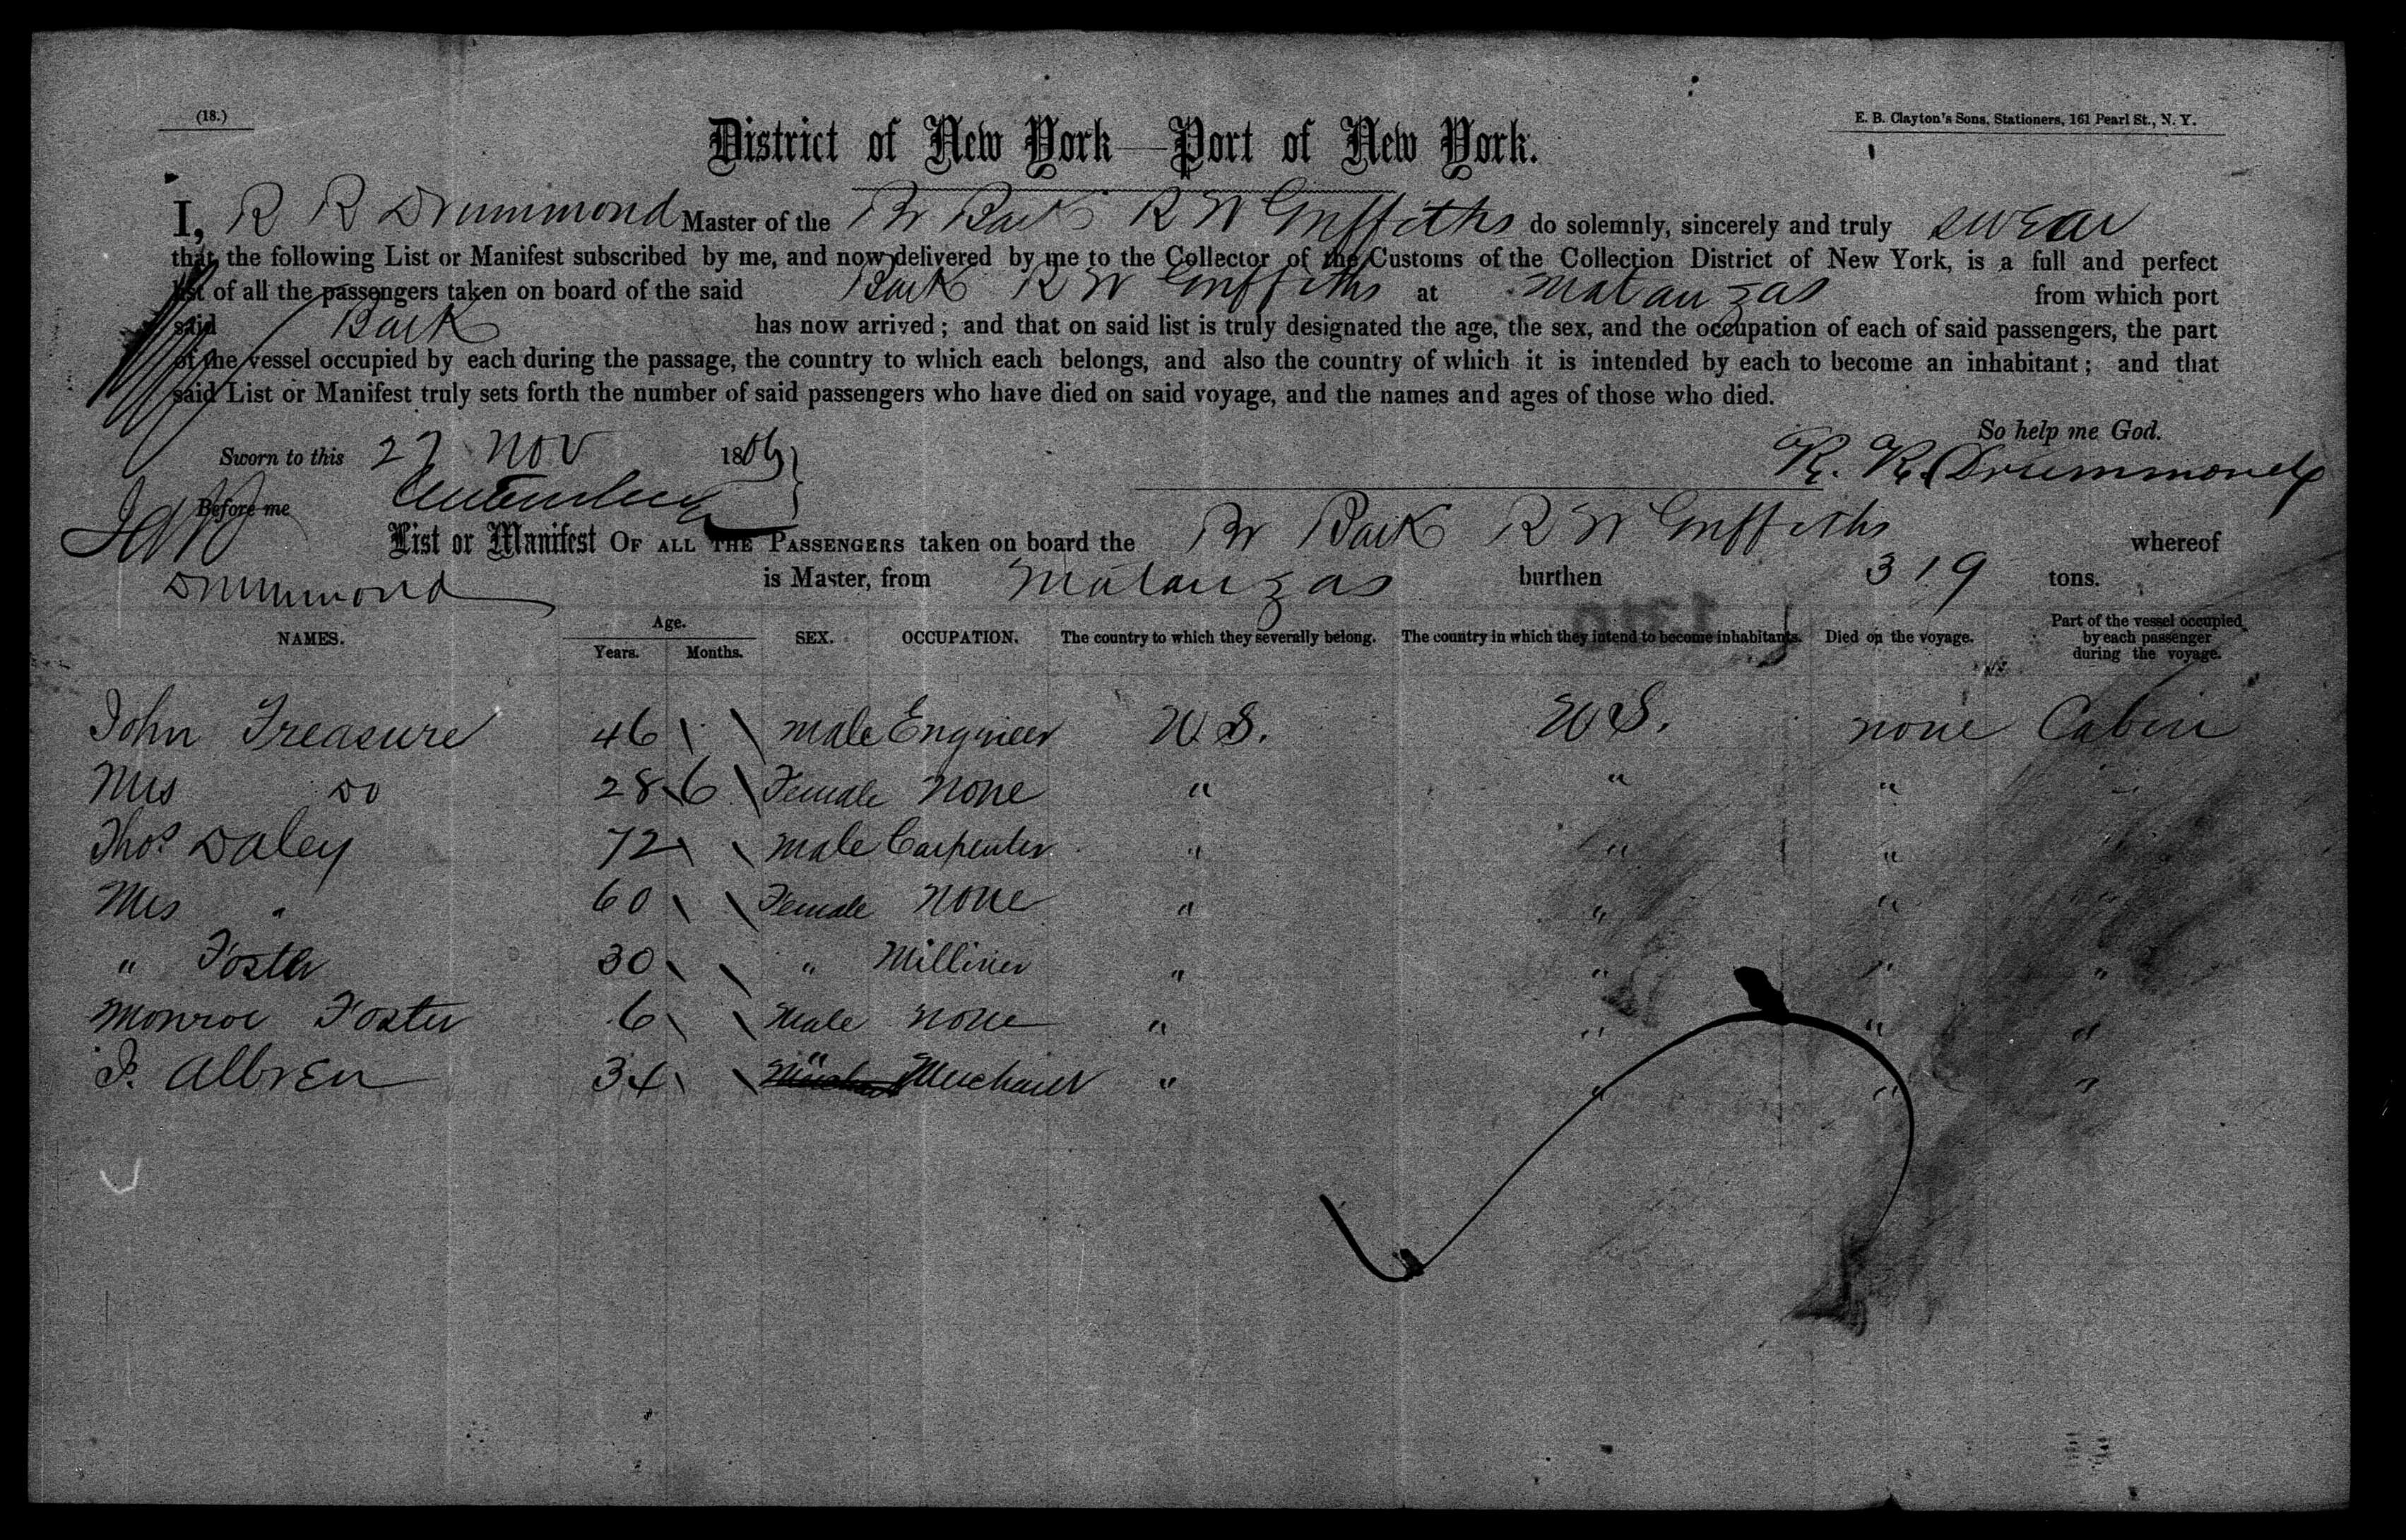 (18.)
E. B. Clayton's Sons, Stationers, 161 Pearl St., N. Y.
District of New York—Port of New York.
I, R R Drummond Master of the Br Bark R W Griffiths do solemnly, sincerely and truly swear
that the following List or Manifest subscribed by me, and now delivered by me to the Collector of the Customs of the Collection District of New York, is a full and perfect
list of all the passengers taken on board of the said Bark R W Griffiths at Matanzas from which port
said Bark has now arrived; and that on said list is truly designated the age, the sex, and the occupation of each of said passengers, the part
of the vessel occupied by each during the passage, the country to which each belongs, and also the country of which it is intended by each to become an inhabitant; and that
said List or Manifest truly sets forth the number of said passengers who have died on said voyage, and the names and ages of those who died.
So help me God.
Sworn to this 27 Nov 186
R. R. Drummond
Before me
List or Manifest OF ALL THE PASSENGERS taken on board the Br Bark R W Griffiths whereof
Drummond is Master, from Matanzas burthen 319 tons.
NAMES. Age. Years. Months. SEX. OCCUPATION. The country to which they severally belong. The country in which they intend to become inhabitants. Died on the voyage. Part of the vessel occupied by each passenger during the voyage.
John Treasure 46 Male Engineer U.S. U.S. none Cabin
Mrs Do 28 6 Female None " " " "
Thos Daley 72 Male Carpenter " " " "
Mrs " 60 Female None " " " "
" Foster 30 " Milliner " " " "
Monroe Foster 6 Male None " " " "
J. Albren 34 " Merchant " " " "